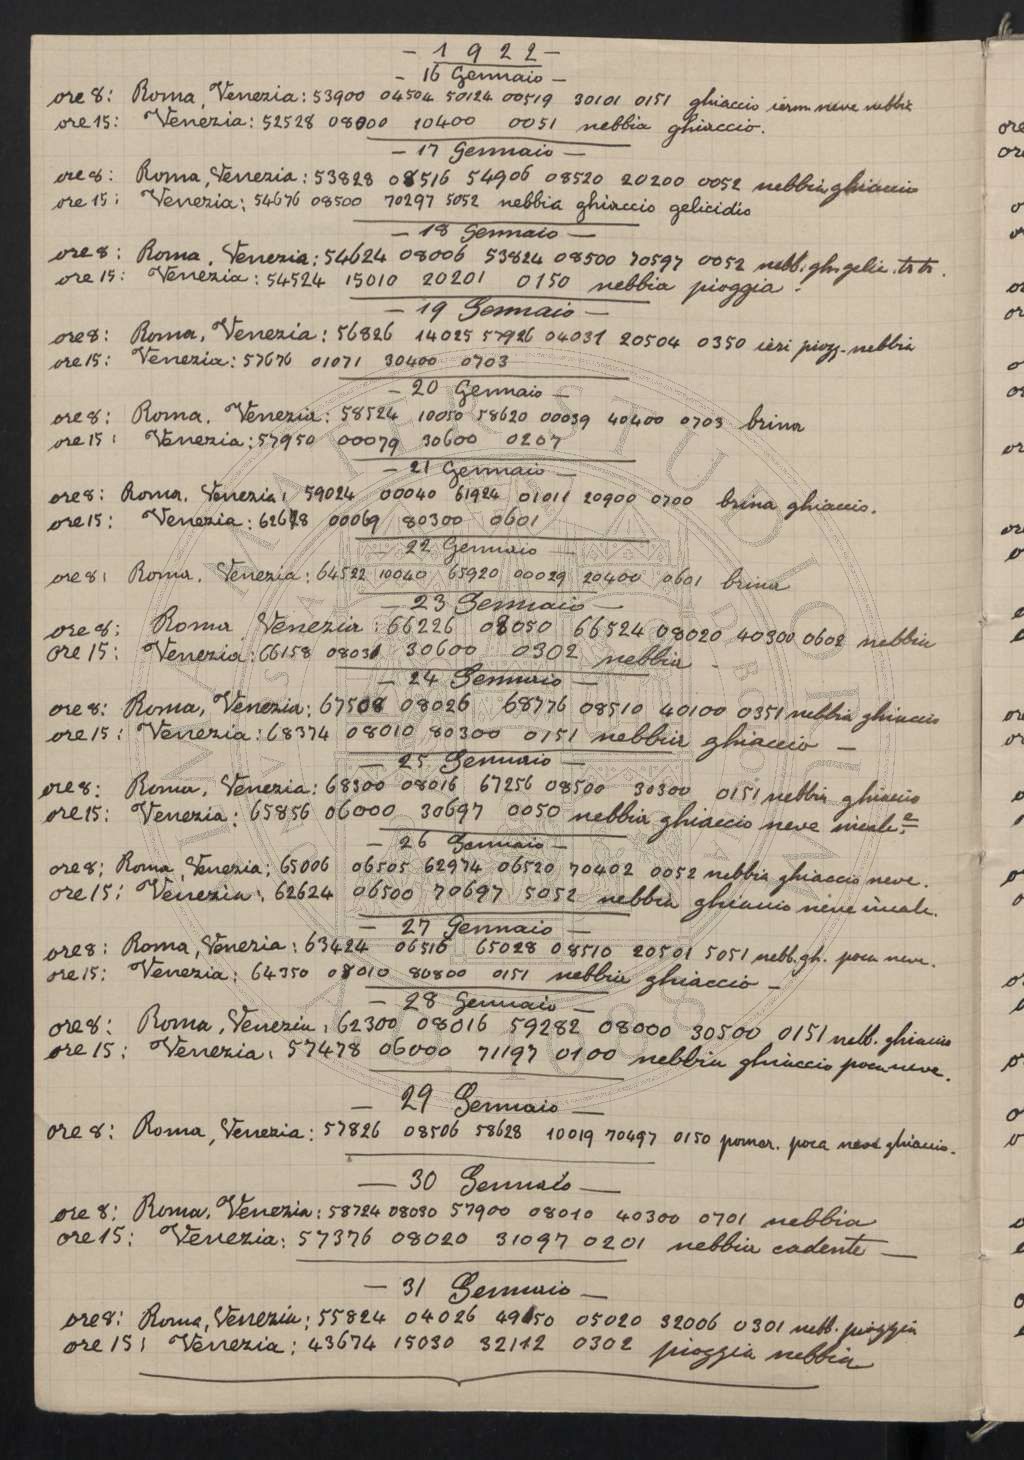 - 1 9 2 2 -
- 16 Gennaio -
ore 8: Roma, Venezia: 53900 04504 50124 00519 30101 0151 ghiaccio neve nebbia
ore 15: Venezia: 52528 08000 10400 0051 nebbia ghiaccio.
- 17 Gennaio -
ore 8: Roma, Venezia: 53828 08516 54906 08520 20200 0052 nebbia ghiaccio
ore 15: Venezia: 54676 08500 70297 5052 nebbia ghiaccio gelicidio
- 18 Gennaio -
ore 8: Roma, Venezia: 54624 08006 53824 08500 70597 0052 nebb. gh. gelic.
ore 15: Venezia: 54524 15010 20201 0150 nebbia pioggia.
- 19 Gennaio -
ore 8: Roma, Venezia: 56826 14025 57926 04031 20504 0350 ieri piogg. nebbia
ore 15: Venezia: 57676 01071 30400 0703
- 20 Gennaio -
ore 8: Roma, Venezia: 58524 10050 58620 00039 40400 0703 brina
ore 15: Venezia: 57950 00079 30600 0207
- 21 Gennaio -
ore 8: Roma, Venezia: 59024 00040 61924 01011 20900 0700 brina ghiaccio.
ore 15: Venezia: 62678 00069 80300 0601
- 22 Gennaio -
ore 8: Roma, Venezia: 64522 10040 65920 00029 20400 0601 brina
- 23 Gennaio -
ore 8: Roma, Venezia: 66226 08050 66524 08020 40300 0602 nebbia
ore 15: Venezia: 66158 08031 30600 0302 nebbia -
- 24 Gennaio -
ore 8: Roma, Venezia: 67508 08026 68776 08510 40100 0351 nebbia ghiaccio
ore 15: Venezia: 68374 08010 80300 0151 nebbia ghiaccio -
- 25 Gennaio -
ore 8: Roma, Venezia: 68300 08016 67256 08500 30300 0151 nebbia ghiaccio
ore 15: Venezia: 65856 06000 30697 0050 nebbia ghiaccio neve
- 26 Gennaio -
ore 8: Roma, Venezia: 65006 06505 62974 06520 70402 0052 nebbia ghiaccio neve.
ore 15: Venezia: 62624 06500 70697 5052 nebbia ghiaccio neve
- 27 Gennaio -
ore 8: Roma, Venezia: 63424 06516 65028 08510 20501 5051 nebb. gh. poca neve.
ore 15: Venezia: 64350 08010 80800 0151 nebbia ghiaccio -
- 28 Gennaio -
ore 8: Roma, Venezia: 62300 08016 59282 08000 30500 0151 nebb. ghiaccio
ore 15: Venezia: 57478 06000 71197 0100 nebbia ghiaccio poca neve.
- 29 Gennaio -
ore 8: Roma, Venezia: 57826 08506 58628 10019 70497 0150 pomer. poca neve ghiaccio.
- 30 Gennaio -
ore 8: Roma, Venezia: 58724 08030 57900 08010 40300 0701 nebbia
ore 15: Venezia: 57376 08020 31097 0201 nebbia cadente -
- 31 Gennaio -
ore 8: Roma, Venezia: 55824 04026 49150 05020 32006 0301 nebb. pioggia
ore 15: Venezia: 43674 15030 32112 0302 pioggia nebbia